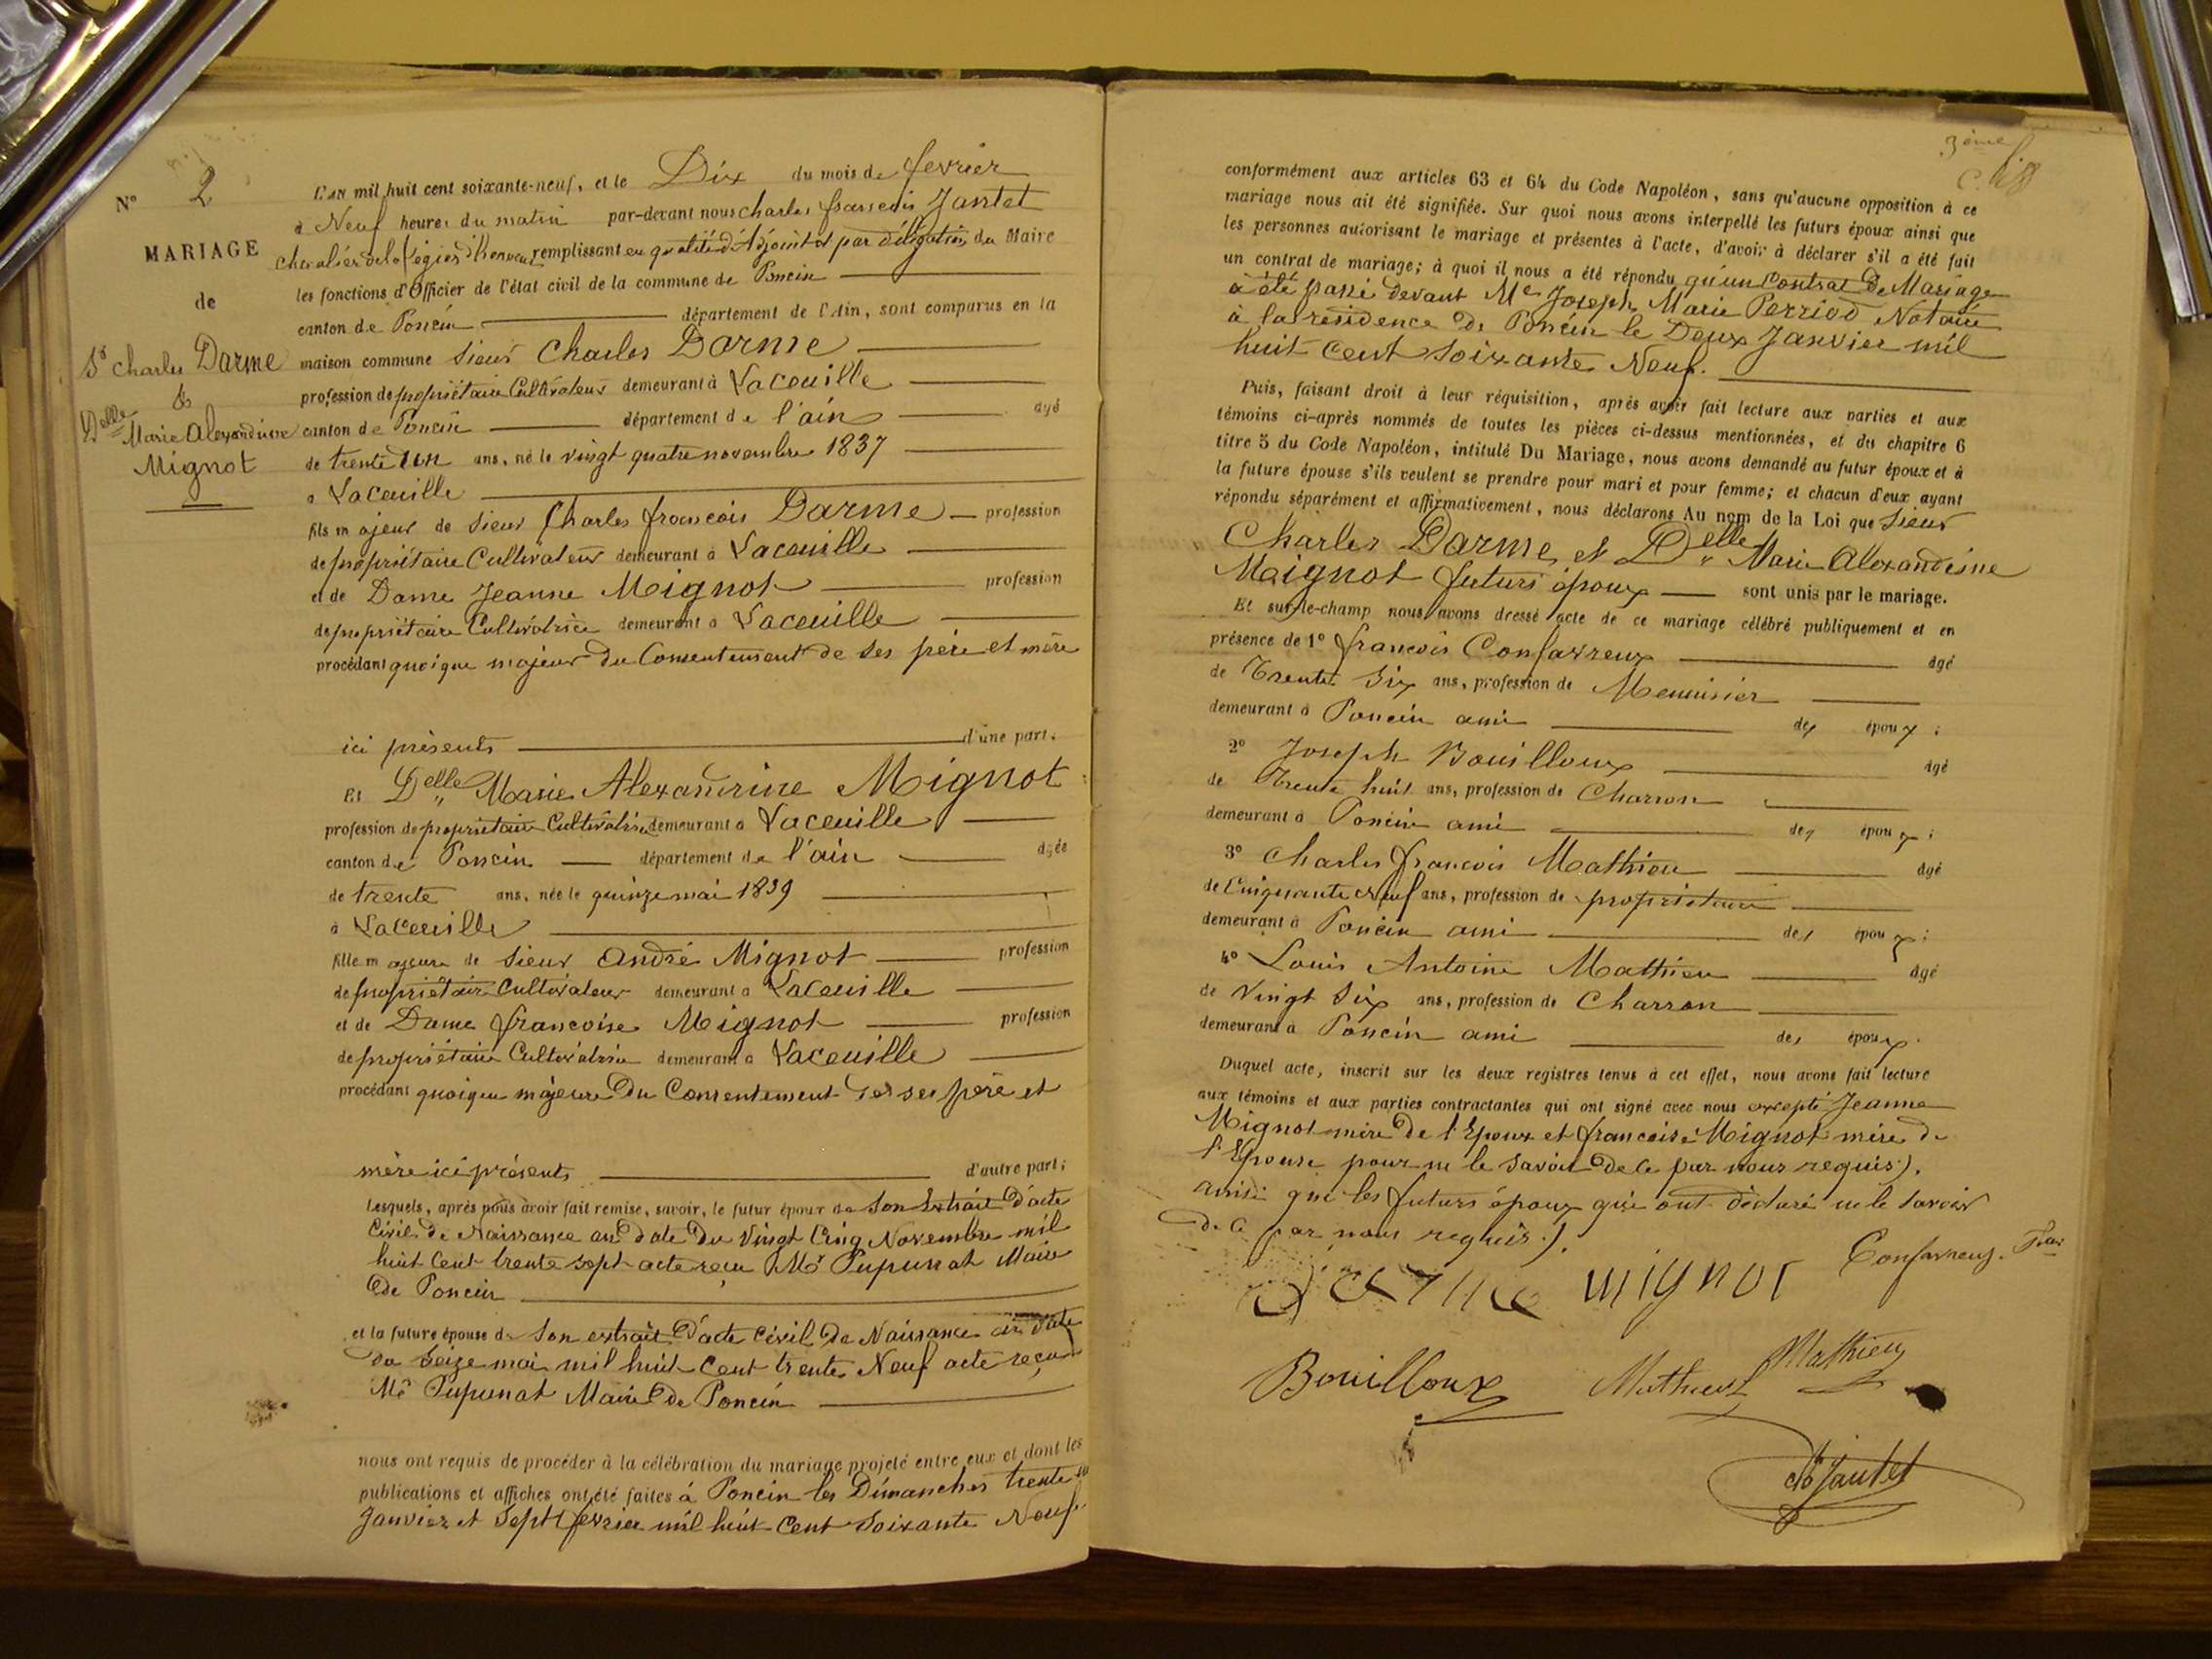 N° 2
MARIAGE
de
Sr Charles Darme
&
Delle
Marie Alexandrine
Mignot
L'an mil huit cent soixante-neuf, et le Dix du mois de fevrier
à Neuf heures du matin par-devant nous charles francois Jantet
chevalier de la Légion d'honneur remplissant en qualité d'Adjoint et par délégation du Maire
les fonctions d'Officier de l'état civil de la commune de Poncin
canton de Poncin département de l'Ain, sont comparus en la
maison commune Sieur Charles Darme
profession de propriétaire Cultivateur demeurant à Lacouille
canton de Poncin département de l'ain âgé
de trente un ans, né le vingt quatre novembre 1837
à Lacouille
fils majeur de Sieur Charles francois Darme profession
de propriétaire Cultivateur demeurant à Lacouille
et de Dame Jeanne Mignot profession
de propriétaire Cultivatrice demeurant à Lacouille
procédant quoique majeur du Consentement de ses père et mère
ici présents d'une part;
Et Delle Marie Alexandrine Mignot
profession de propriétaire Cultivatrice demeurant à Lacouille
canton de Poncin département de l'ain âgée
de trente ans, née le quinze mai 1839
à Lacouille
fille majeure de Sieur André Mignot profession
de propriétaire Cultivateur demeurant à Lacouille
et de Dame francoise Mignot profession
de propriétaire Cultivatrice demeurant à Lacouille
procédant quoique majeure Du Consentement de ses père et
mère ici présents d'autre part;
Lesquels, après nous avoir fait remise, savoir, le futur époux de Son Extrait D'acte
Civil de Naissance en date Du Vingt Cinq Novembre mil
huit Cent trente sept acte reçu Mr Pupunat Maire
De Poncin
et la future épouse de Son extrait D'acte Civil De Naissance en Date
du Seize mai mil huit Cent trente Neuf acte reçu
Mr Pupunat Maire De Poncin
nous ont requis de procéder à la célébration du mariage projeté entre eux et dont les
publications et affiches ont été faites à Poncin les Dimanches trente un
Janvier et Sept fevrier mil huit Cent Soixante Neuf
3ème
conformément aux articles 63 et 64 du Code Napoléon, sans qu'aucune opposition à ce
mariage nous ait été signifiée. Sur quoi nous avons interpellé les futurs époux ainsi que
les personnes autorisant le mariage et présentes à l'acte, d'avoir à déclarer s'il a été fait
un contrat de mariage; à quoi il nous a été répondu qu'un Contrat De Mariage
a été passé devant Me Joseph Marie Perriod Notaire
à la résidence De Poncin le Deux Janvier mil
huit Cent Soixante Neuf.
Puis, faisant droit à leur réquisition, après avoir fait lecture aux parties et aux
témoins ci-après nommés de toutes les pièces ci-dessus mentionnées, et du chapitre 6
titre 5 du Code Napoléon, intitulé Du Mariage, nous avons demandé au futur époux et à
la future épouse s'ils veulent se prendre pour mari et pour femme; et chacun d'eux ayant
répondu séparément et affirmativement, nous déclarons Au nom de la Loi que Sieur
Charles Darme et Delle Marie Alexandrine
Mignot futurs époux sont unis par le mariage.
Et sur-le-champ nous avons dressé acte de ce mariage célébré publiquement et en
présence de 1° francois Confavreux âgé
de Trente Six ans, profession de Menuisier
demeurant à Poncin ami des époux;
2° Joseph Bouilloux âgé
de Trente huit ans, profession de Charron
demeurant à Poncin ami des époux;
3° Charles francois Mathieu âgé
de Cinquante Neuf ans, profession de propriétaire
demeurant à Poncin ami des époux;
4° Louis Antoine Mathieu âgé
de Vingt Six ans, profession de Charron
demeurant à Poncin ami des époux.
Duquel acte, inscrit sur les deux registres tenus à cet effet, nous avons fait lecture
aux témoins et aux parties contractantes qui ont signé avec nous excepté Jeanne
Mignot mère De l'Epoux et francoise Mignot mère de
l'Epouse pour ne le Savoir De Ce par nous requis).
ainsi que les futurs époux qui ont déclaré ne le Savoir
de ce par nous requis).
Darme mignot Confavreux
Bouilloux Mathieu Mathieu
Jantet